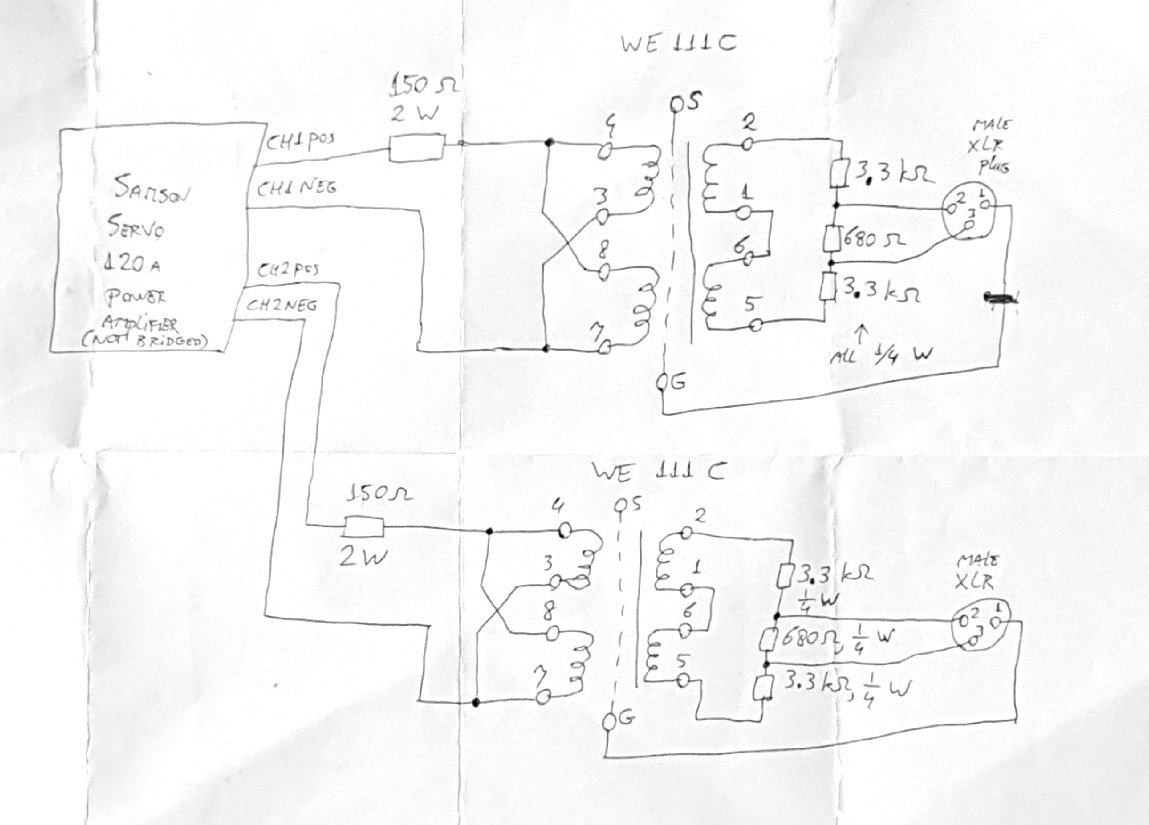 WE 111C
150Ω
2 W
CH1 POS
CH1 NEG
CH2 POS
CH2 NEG
SAMSON
SERVO
120A
POWER
AMPLIFIER
(NOT BRIDGED)
4
3
8
7
S
G
2
1
6
5
3.3 kΩ
680 Ω
3.3 kΩ
ALL 1/4 W
MALE
XLR
PLUG
2 1
3
WE 111C
150Ω
2W
4
3
8
7
S
G
2
1
6
5
3.3 kΩ
1/4 W
680Ω, 1/4 W
3.3 kΩ, 1/4 W
MALE
XLR
2 1
3